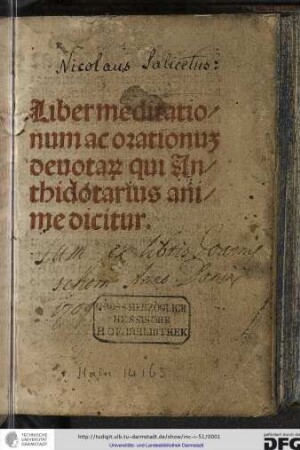 Nicolaus Salicetus:
Liber meditatio/
num ac orationuʒ
deuotaꝝ qui An/
thidotarius ani/
me dicitur.
sum ex libris Joannis
Anno Domini
GROSSHERZOGLICH
HESSISCHE
HOFBIBLIOTHEK
Hain 14163
TECHNISCHE
UNIVERSITÄT
DARMSTADT
http://tudigit.ulb.tu-darmstadt.de/show/inc-ii-51/0001
Universitäts- und Landesbibliothek Darmstadt
gefördert durch die
DFG